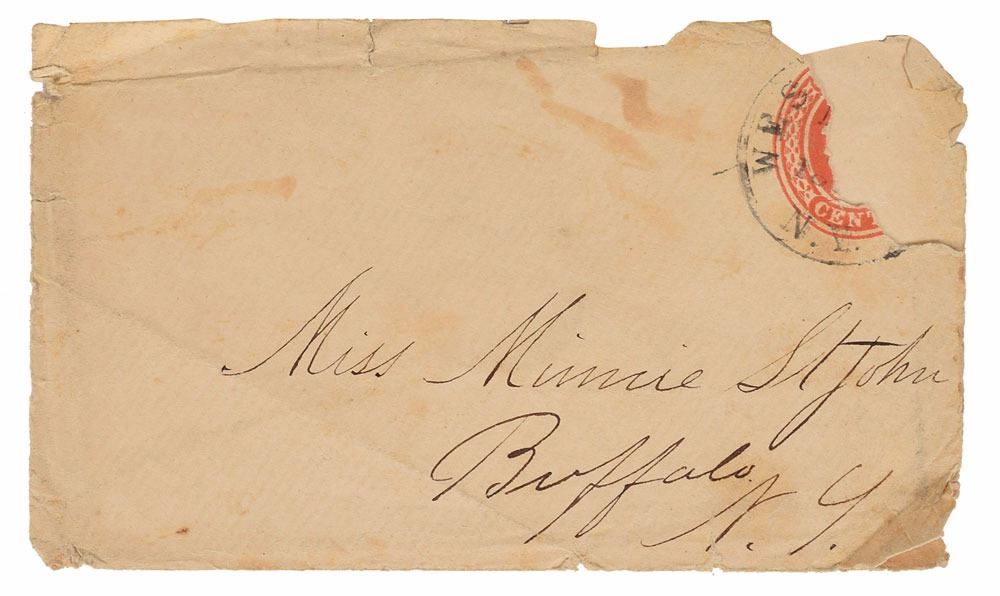 WES
N.Y.
CENT
Miss Minnie St John
Buffalo
N. Y.